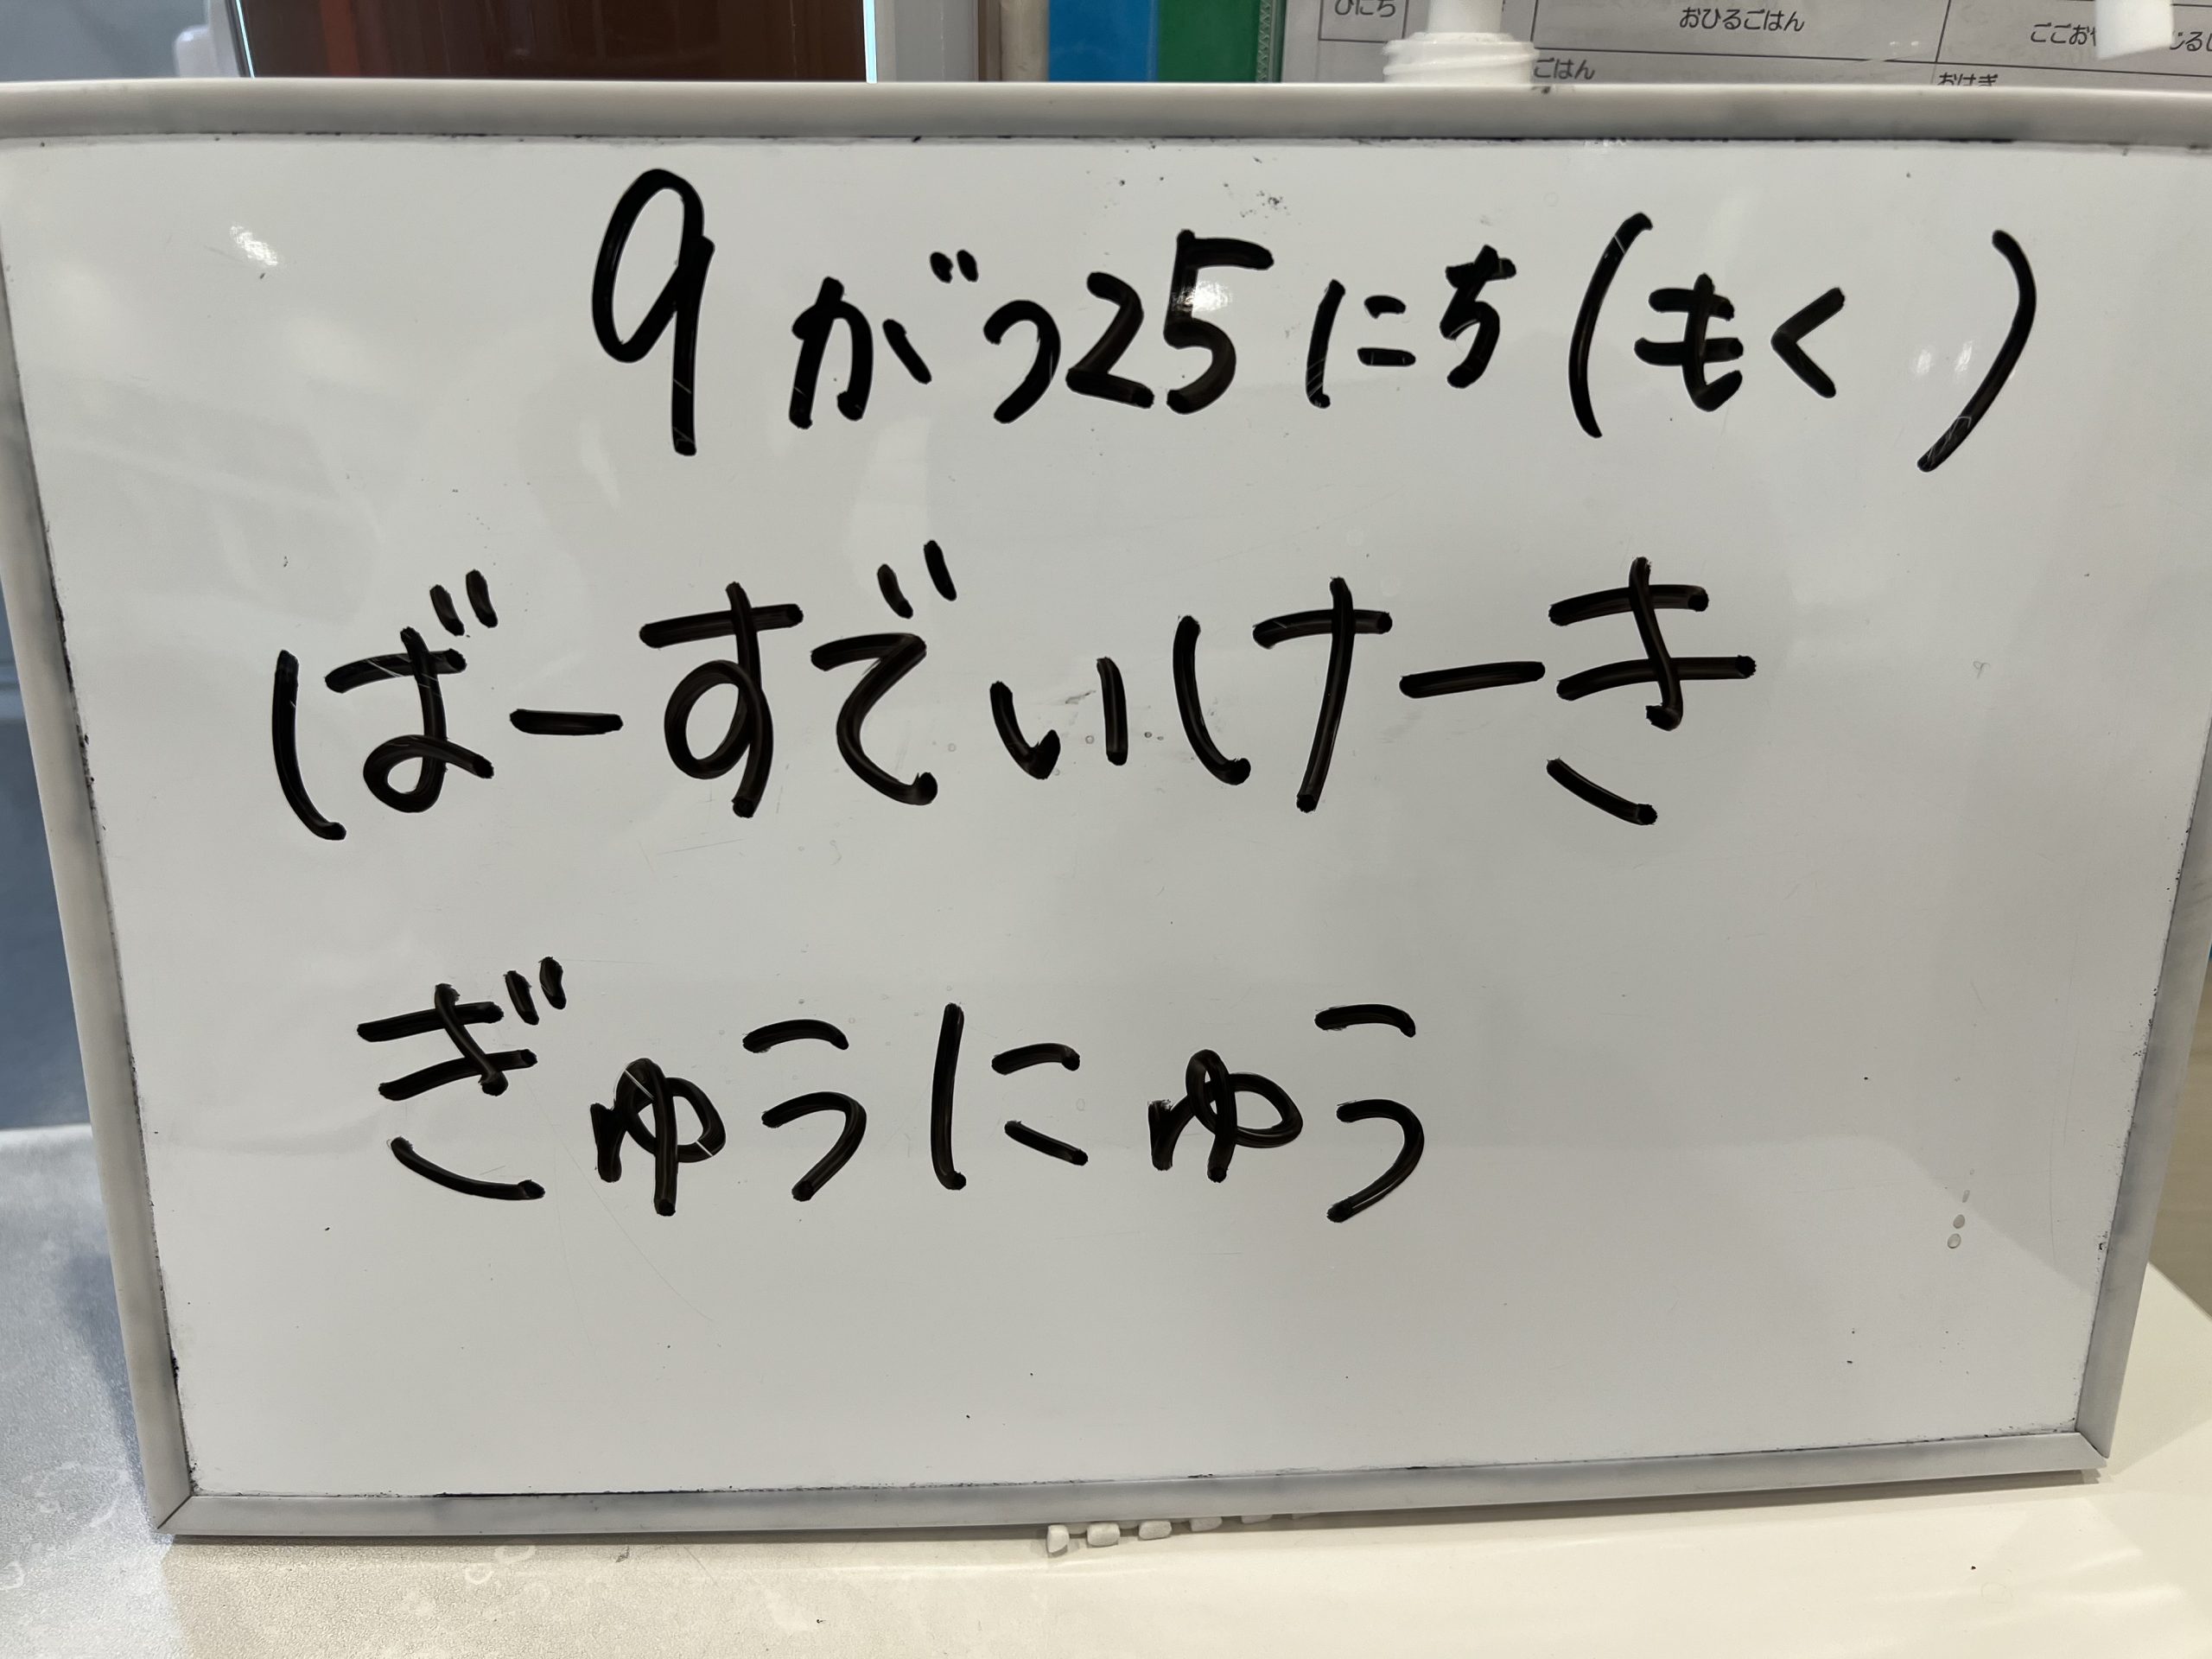 ひにち おひるごはん
ごはん おはぎ
9がつ25にち(もく )
ばーすでぃけーき
ぎゅうにゅう